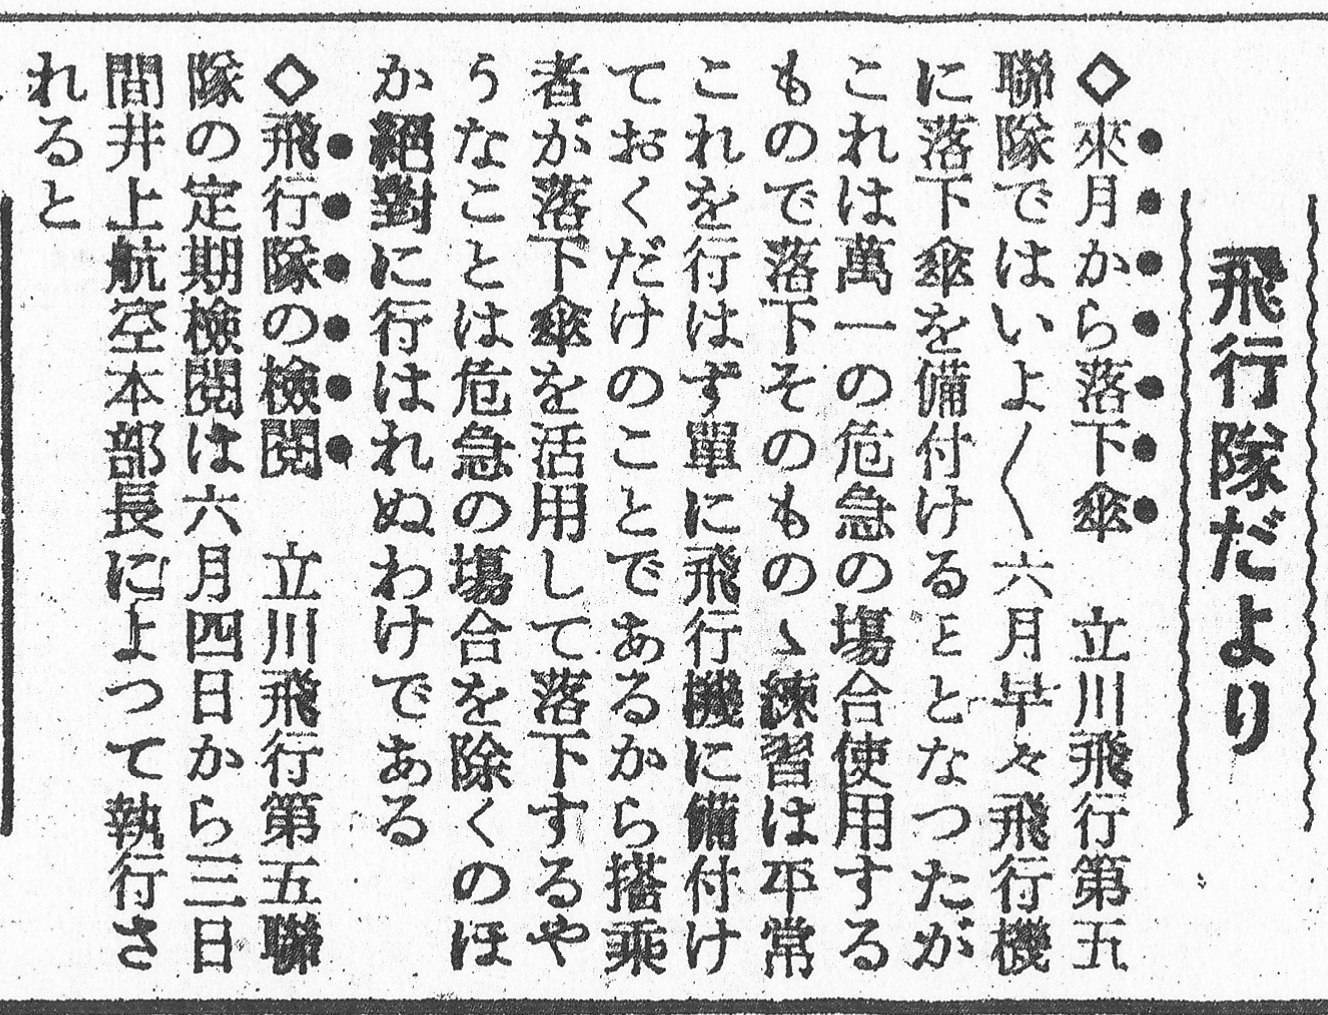 飛行隊だより
◇來月から落下傘　立川飛行第五
聯隊ではいよ〱六月早々飛行機
に落下傘を備付けるこことなつたが
これは萬一の危急の場合使用する
もので落下そのものゝ練習は平常
これを行はず單に飛行機に備付け
ておくだけのことであるから搭乘
者が落下傘を活用して落下するや
うなことは危急の場合を除くのほ
か絕對に行はれぬわけである
◇飛行隊の檢閱　立川飛行第五聯
隊の定期檢閱は六月四日から三日
間井上航空本部長によつて執行さ
れると